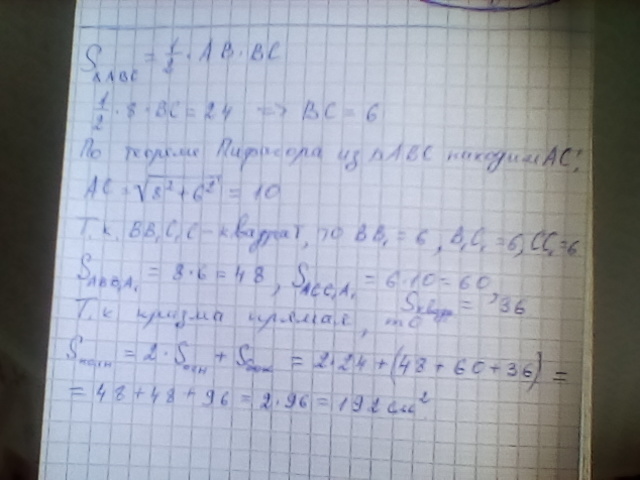 S△ABC = 1/2 · AB · BC
1/2 · 8 · BC = 24 => BC = 6
По теореме Пифагора из △ABC находим AC:
AC = √8² + 6² = 10
Т.к. BB₁C₁C - квадрат, то BB₁ = 6, B₁C₁ = 6, CC₁ = 6
SABB₁A₁ = 8·6 = 48, SACC₁A₁ = 6·10 = 60, Sквадр = 36
Т.к призма прямая, то
Sполн = 2·Sосн + Sбок = 2·24 + (48 + 60 + 36) =
= 48 + 48 + 96 = 2·96 = 192 см²